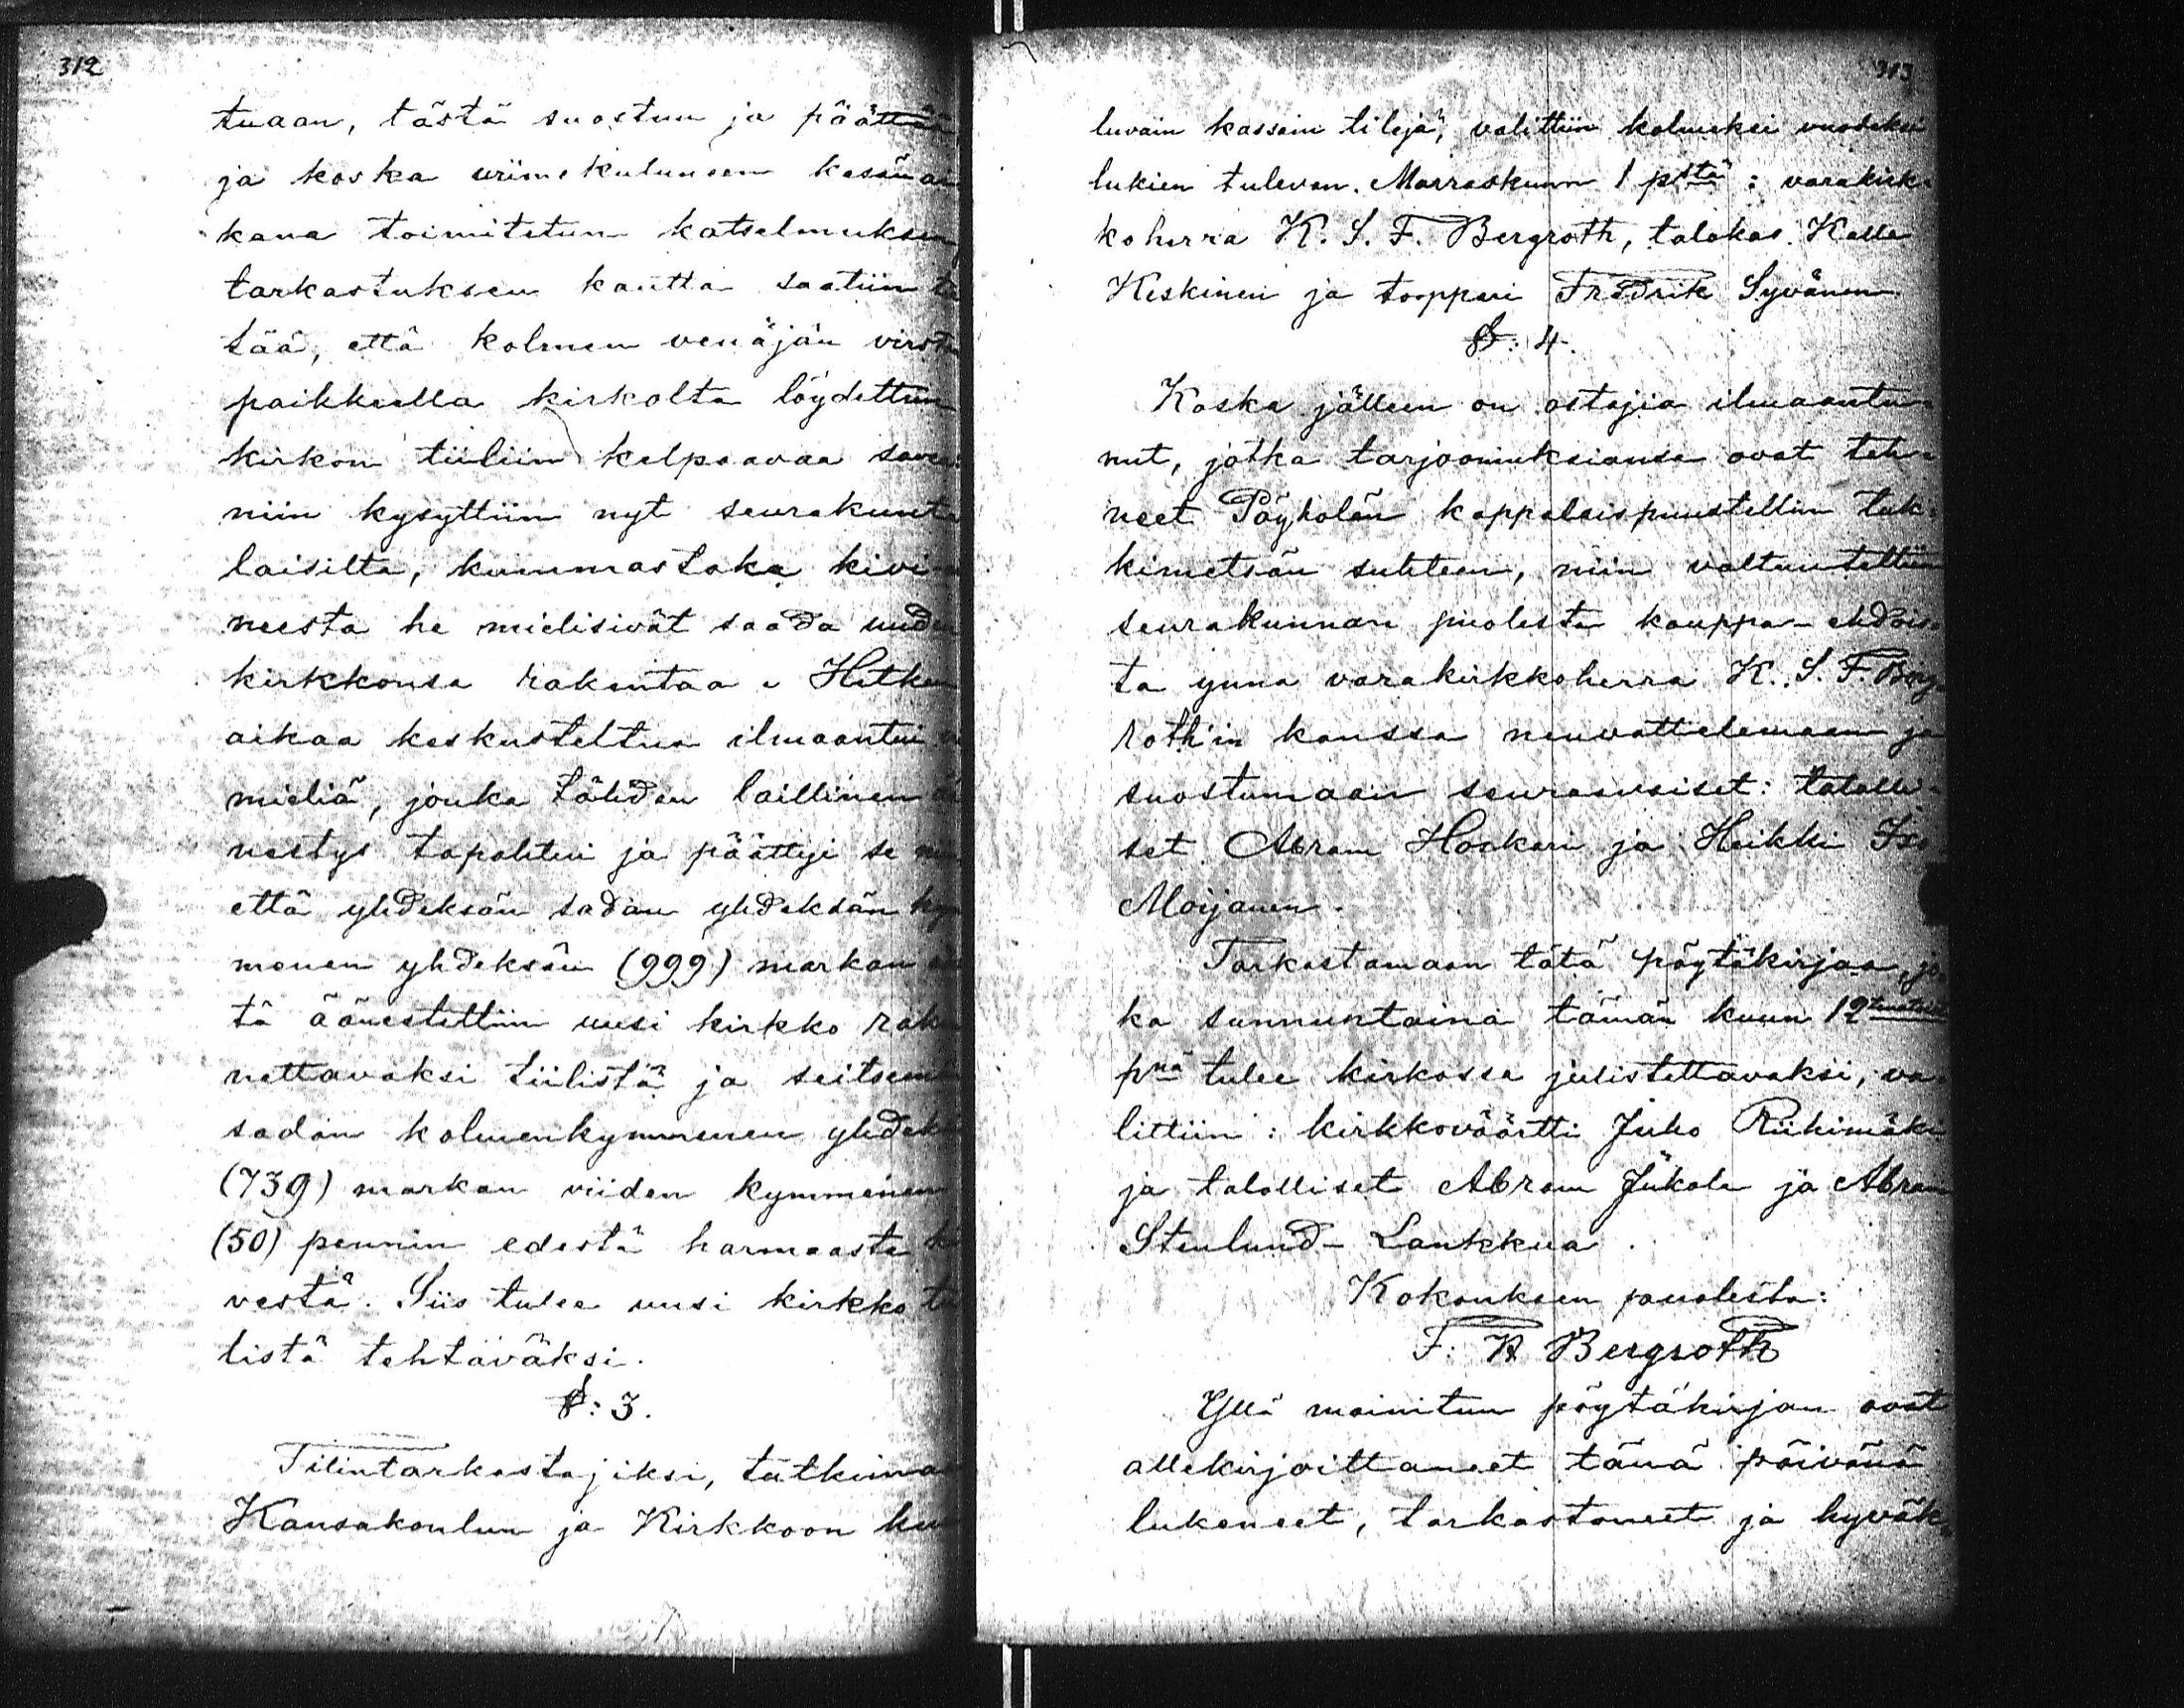 312
tuaan, tästä suostuu ja päättää
ja koska viimekuluneen kesän ai
kana toimitetun katselmuksen
tarkastuksen kautta saatiin
tää, että kolmen venäjän virstan
paikkeella kirkolta löydettiin
kirkon tiiliin kelpaavaa savea
niin kysyttiin nyt seurakunta
laisilta, kummastako kivi
neesta he mielisivät saada uuden
kirkkonsa rakentaa. Hetken
aikaa keskusteltua ilmaantui
mieliä, jonka tähden laillinen
nestys tapahtui ja päättyi se
että yhdeksän sadan yhdeksän kym
menen yhdeksän (999) markan
tä äänestettiin uusi kirkko rake
nettavaksi tiilistä ja seitsemän
sadan kolmenkymmenen yhdek
(739) markan viiden kymmenen
(50) pennin edestä harmaasta
vestä. Siis tulee uusi kirkko
listä tehtäväksi.
§: 3.
Tilintarkastajiksi, tutkima
Kansakoulun ja Kirkkoon ku
313
luvain kassain tilejä, valittiin kolmeksi vuodeksi
lukien tulevan Marraskuun 1 pstä: varakirk-
koherra K. S. F. Bergroth, talokas Kalle
Keskinen ja torppari Fredrik Syvänen.
§: 4.
Koska jälleen on ostajia ilmaantu-
nut, jotka tarjoomuksiansa ovat teh-
neet Pöyholän kappalaispuustellin tuk-
kimetsän suhteen, niin valtuutettiin
seurakunnan puolesta kauppa-ehdois-
ta ynnä varakirkkoherra K. S. F. Berg
roth'in kanssa neuvottelemaan ja
suostumaan seuraavaiset: talolli-
set Abram Haakari ja Heikki Iso
Moijanen.
Tarkastamaan tätä pöytäkirjaa, jo
ka sunnuntaina tämän kuun 12
pnä tulee kirkossa julistettavaksi, va
littiin: kirkkoväärtti Juho Riihimäki
ja talolliset Abram Jukola ja Abram
Stenlund-Lankkua.
Kokouksen puolesta:
F. K Bergroth
Yllä mainitun pöytäkirjan ovat
allekirjoittaneet tänä päivänä
lukeneet, tarkastaneet ja hyväk